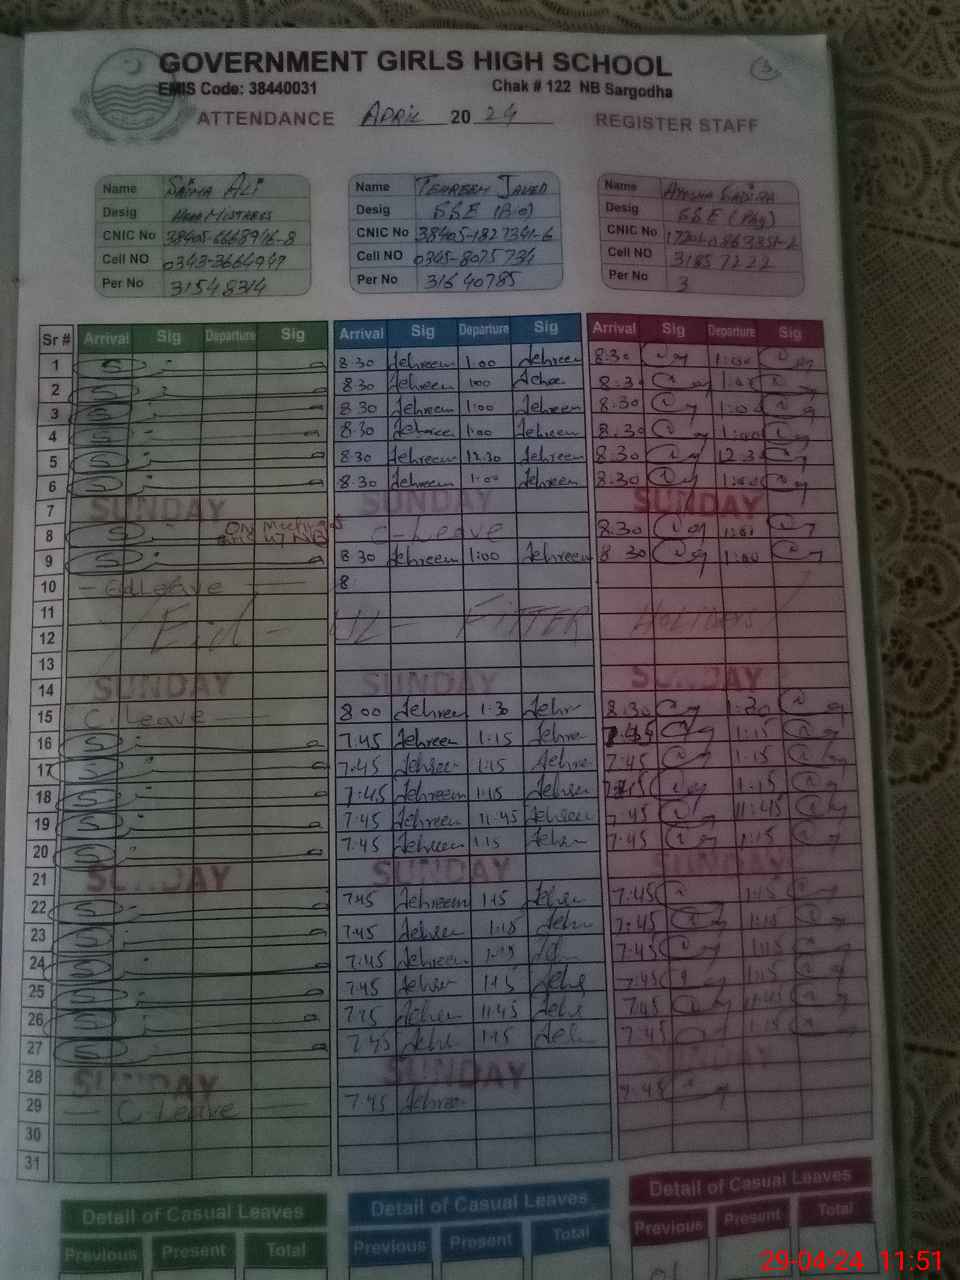 GOVERNMENT GIRLS HIGH SCHOOL
EMIS Code: 38440031 Chak # 122 NB Sargodha
ATTENDANCE APRIL 20 24 REGISTER STAFF
Name SAIMA ALI Name TEHREEM JAVED Name
Desig Desig SSE (Bio) Desig SSE (Phy)
CNIC No CNIC No 38405-1827341-6 CNIC No
Cell NO 0343-3664947 Cell NO 0345-8075734 Cell NO 3185 7222
Per No 31548314 Per No 31640785 Per No 3
Sr # Arrival Sig Departure Sig Arrival Sig Departure Sig Arrival Sig Departure Sig
1 S 8.30 Tehreem 1.00 Tehreem 8.30 1:00
2 S 8.30 Tehreem 1:00 8.30 1:00
3 S 8.30 Tehreem 1:00 Tehreem 8.30 1:00
4 S 8.30 Tehreem 1:00 Tehreem 8.30 1:00
5 S 8.30 Tehreem 12.30 Tehreem 8.30 12.30
6 S 8.30 Tehreem 1:00 Tehreem 8.30 1:00
7 SUNDAY SUNDAY SUNDAY
8 S On Meeting C-Leave 8.30 1:00
9 S 8 30 Tehreem 1:00 Tehreem 8 30 1:00
10 Leave 8
11 Eid - UL - FITTER HOLIDAYS
12
13
14 SUNDAY SUNDAY SUNDAY
15 C. Leave 8 00 Tehreem 1.30 Tehr 8.30 1.30
16 S 7:45 Tehreem 1:15 Tehre 7.45 1:15
17 S 7.45 Tehreem 1:15 Tehre 7:45 1:15
18 S 7:45 Tehreem 1:15 Tehree 7:45 1:15
19 S 7:45 Tehreem 11.45 Tehreem 7:45 11:45
20 S 7:45 Tehreem 1:15 7:45 1:15
21 SUNDAY SUNDAY SUNDAY
22 S 7:45 Tehreem 1:15 7:45 1:15
23 S 7:45 1:15 7:45 1:15
24 S 7:45 Tehreem 7:45 1:15
25 S 7:45 1:15 7:45 1:15
26 S 11:45 7:45 11:45
27 S 7:45 1:15 7:45 1:15
28 SUNDAY SUNDAY SUNDAY
29 C. Leave 7:45 Tehree 7:45
30
31
Detail of Casual Leaves Detail of Casual Leaves Detail of Casual Leaves
Previous Present Total Previous Present Total Previous Present Total
29-04-24 11:51